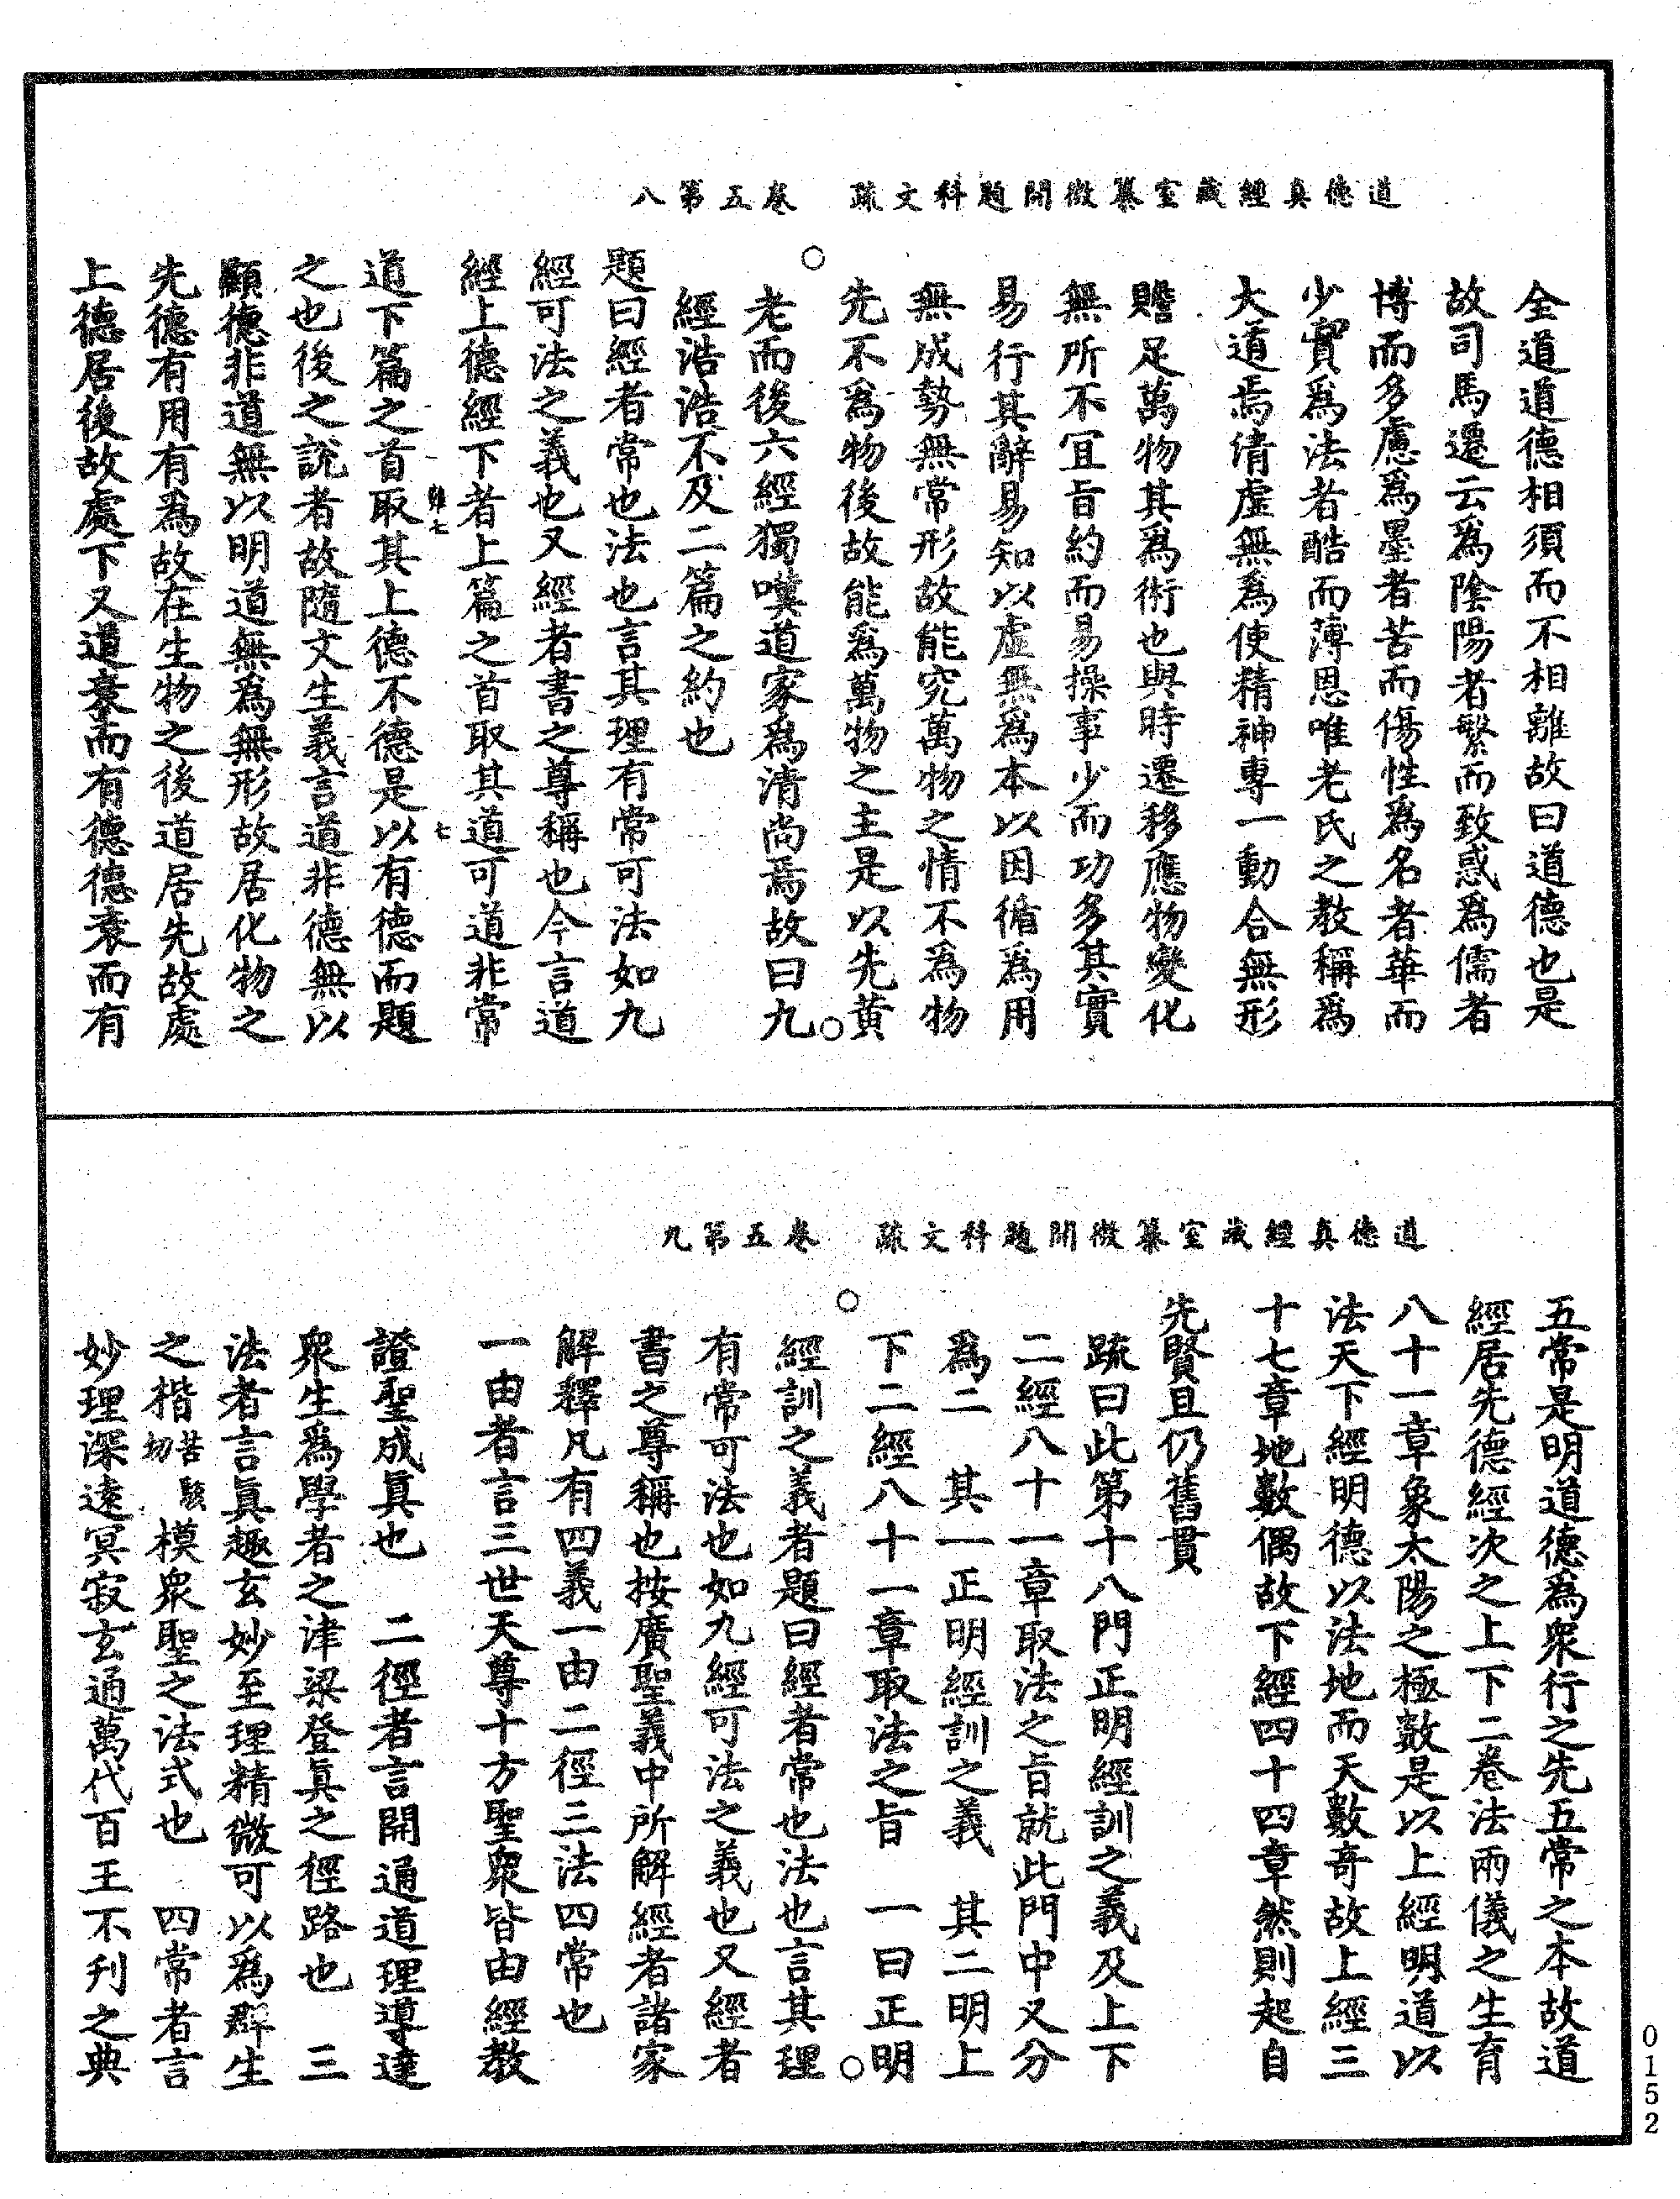 道德真經藏室纂微開題科文疏　卷五第八
全道道德相須而不相離故曰道德也是
故司馬遷云為陰陽者繁而致惑為儒者
博而多慮為墨者苦而傷性為名者華而
少實為法者酷而薄恩唯老氏之教稱為
大道焉清虛無為使精神專一動合無形
贍足萬物其為術也與時遷移應物變化
無所不宜旨約而易操事少而功多其實
易行其辭易知以虛無為本以因循為用
無成勢無常形故能究萬物之情不為物
先不為物後故能為萬物之主是以先黃
老而後六經獨嘆道家為清尚焉故曰九
經浩浩不及二篇之約也
題曰經者常也法也言其理有常可法如九
經可法之義也又經者書之尊稱也今言道
經上德經下者上篇之首取其道可道非常
道下篇之首取其上德不德是以有德而題
之也後之說者故隨文生義言道非德無以
顯德非道無以明道無為無形故居化物之
先德有用有為故在生物之後道居先故處
上德居後故處下又道衰而有德德衰而有
道德真經藏室纂微開題科文疏　卷五第九
五常是明道德為眾行之先五常之本故道
經居先德經次之上下二卷法兩儀之生育
八十一章象太陽之極數是以上經明道以
法天下經明德以法地而天數奇故上經三
十七章地數偶故下經四十四章然則起自
先賢且仍舊貫
疏曰此第十八門正明經訓之義及上下
二經八十一章取法之旨就此門中又分
為二　其一正明經訓之義　其二明上
下二經八十一章取法之旨　一曰正明
經訓之義者題曰經者常也法也言其理
有常可法也如九經可法之義也又經者
書之尊稱也按廣聖義中所解經者諸家
解釋凡有四義一由二徑三法四常也
一由者言三世天尊十方聖眾皆由經教
證聖成真也　二徑者言開通道理導達
眾生為學者之津梁登真之徑路也　三
法者言真趣玄妙至理精微可以為群生
之楷苦駭切模眾聖之法式也　四常者言
妙理深遠冥寂玄通萬代百王不刊之典
0152